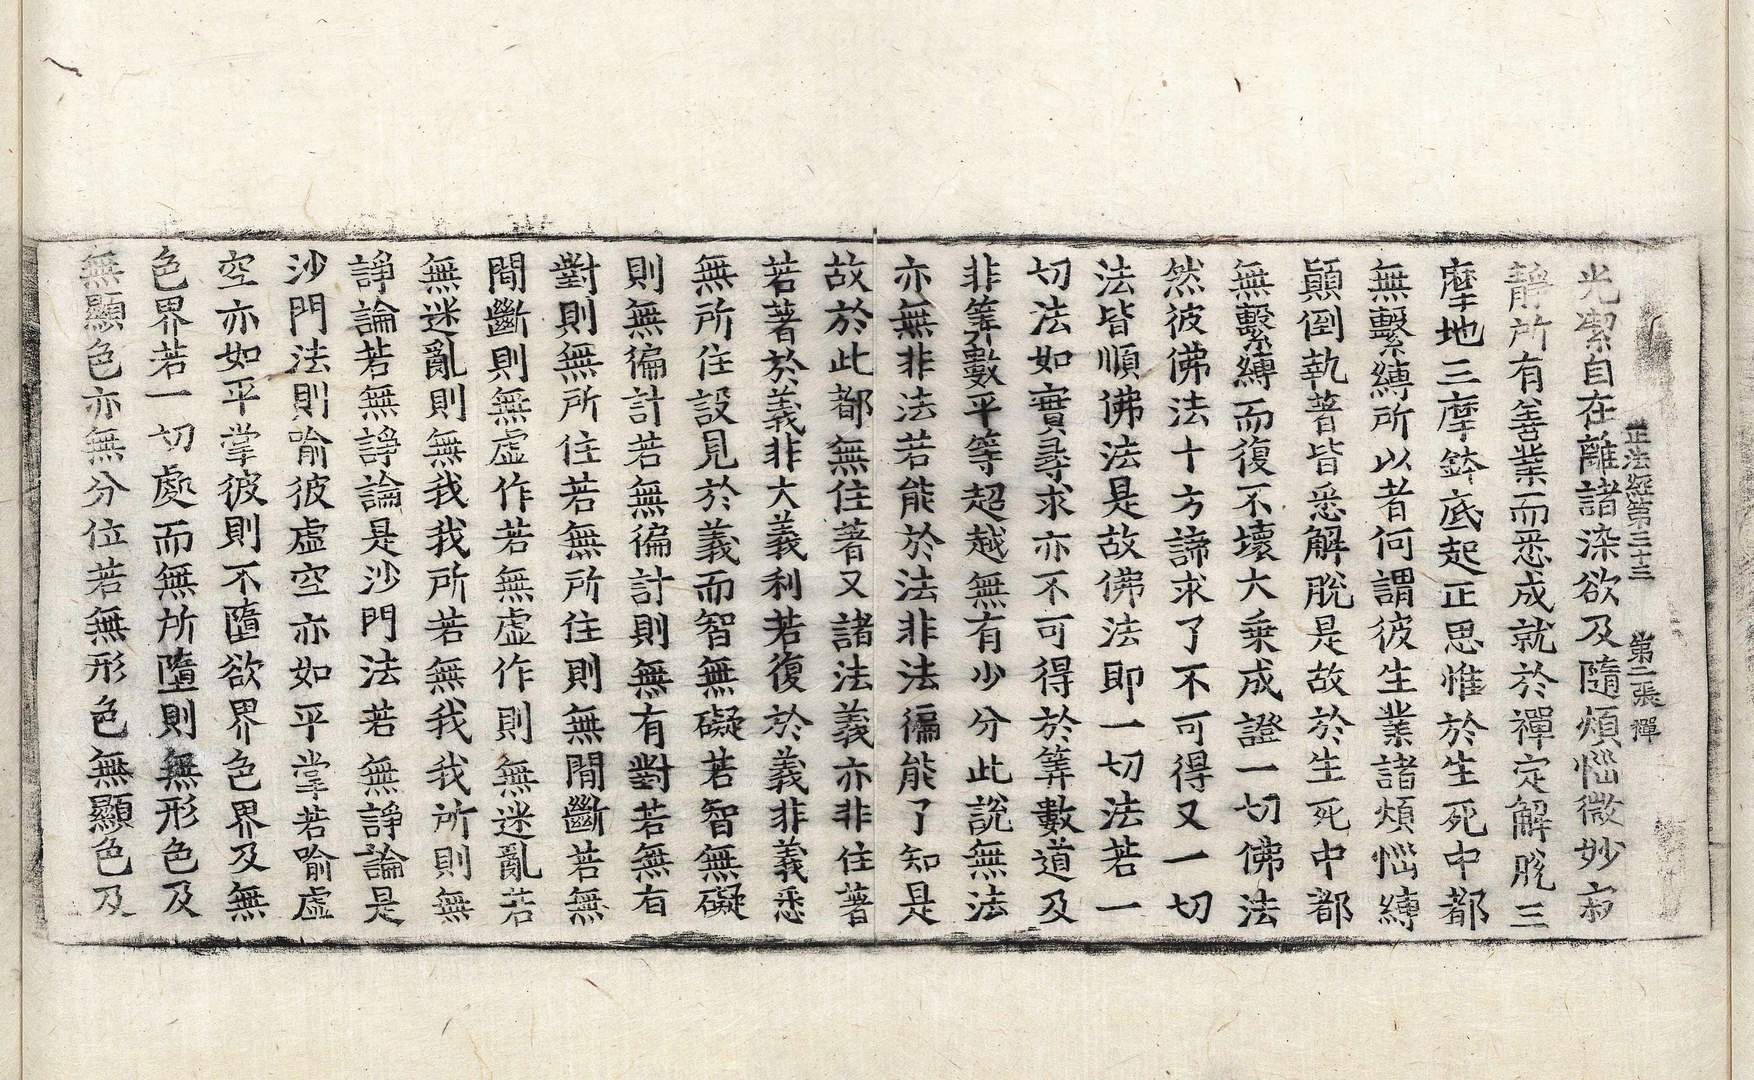 正法經第三十三 第二張 禪
光潔自在離諸染欲及隨煩惱微妙寂
靜所有善業而悉成就於禪定解脫三
摩地三摩鉢底起正思惟於生死中都
無繫縛所以者何謂彼生業諸煩惱縛
顛倒執著皆悉解脫是故於生死中都
無繫縛而復不壞大乘成證一切佛法
然彼佛法十方諦求了不可得又一切
法皆順佛法是故佛法即一切法若一
切法如實尋求亦不可得於筭數道及
非筭數平等超越無有少分此說無法
亦無非法若能於法非法徧能了知是
故於此都無住著又諸法義亦非住著
若著於義非大義利若復於義非義悉
無所住設見於義而智無礙若智無礙
則無徧計若無徧計則無有對若無有
對則無所住若無所住則無間斷若無
間斷則無虛作若無虛作則無迷亂若
無迷亂則無我我所若無我我所則無
諍論若無諍論是沙門法若無諍論是
沙門法則喻彼虛空亦如平掌若喻虛
空亦如平掌彼則不墮欲界色界及無
色界若一切處而無所墮則無形色及
無顯色亦無分位若無形色無顯色及